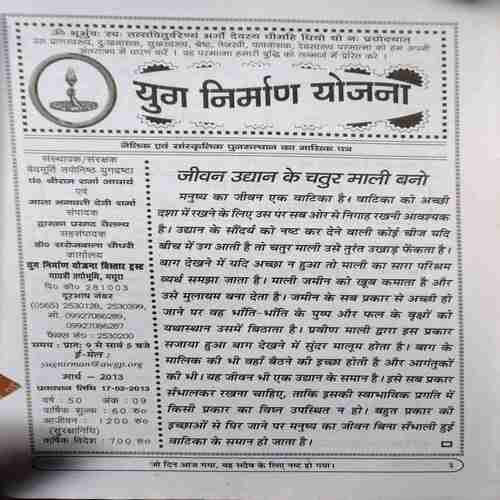 ॐ भूर्भुवः स्वः तत्सवितुर्वरेण्यं भर्गो देवस्य धीमहि धियो यो नः प्रचोदयात्
उस प्राणस्वरूप, दुःखनाशक, सुखस्वरूप, श्रेष्ठ, तेजस्वी, पापनाशक, देवस्वरूप परमात्मा को हम अपनी
अंतरात्मा में धारण करें । वह परमात्मा हमारी बुद्धि को सन्मार्ग में प्रेरित करे ।
युग निर्माण योजना
नैतिक एवं सांस्कृतिक पुनरुत्थान का मासिक पत्र
संस्थापक/संरक्षक
वेदमूर्ति तपोनिष्ठ युगद्रष्टा
पं० श्रीराम शर्मा आचार्य
एवं
माता भगवती देवी शर्मा
संपादक
द्वारका प्रसाद चैतन्य
सहसंपादक
डॉ० सरोजबाला चौधरी
कार्यालय
युग निर्माण योजना विस्तार ट्रस्ट
गायत्री तपोभूमि, मथुरा
पि० को० 281003
दूरभाष नंबर
(0565) 2530128, 2530399,
मो. 09927086289,
09927086287
फैक्स नं० : 2530200
समय : प्रातः 9 से सायं 5 बजे
ई-मेल :
yugnirman@awgp.org
मार्च - 2013
प्रकाशन तिथि 17-02-2013
वर्ष : 50 अंक : 09
वार्षिक शुल्क : 60 रु०
आजीवन : 1200 रु०
(सुरक्षानिधि)
वार्षिक विदेश : 700 रु०
जीवन उद्यान के चतुर माली बनो
मनुष्य का जीवन एक वाटिका है। वाटिका को अच्छी
दशा में रखने के लिए उस पर सब ओर से निगाह रखनी आवश्यक
है। उद्यान के सौंदर्य को नष्ट कर देने वाली कोई चीज यदि
बीच में उग आती है तो चतुर माली उसे तुरंत उखाड़ फेंकता है।
बाग देखने में यदि अच्छा न हुआ तो माली का सारा परिश्रम
व्यर्थ समझा जाता है। माली जमीन को खूब कमाता है और
उसे मुलायम बना देता है। जमीन के सब प्रकार से अच्छी हो
जाने पर वह भाँति-भाँति के पुष्प और फल के वृक्षों को
यथास्थान उसमें बिठाता है। प्रवीण माली द्वारा इस प्रकार
सजाया हुआ बाग देखने में सुंदर मालूम होता है। बाग के
मालिक की भी वहाँ बैठने की इच्छा होती है और आगंतुकों
की भी। यह जीवन भी एक उद्यान के समान है। इसे सब प्रकार
सँभालकर रखना चाहिए, ताकि इसकी स्वाभाविक प्रगति में
किसी प्रकार का विघ्न उपस्थित न हो। बहुत प्रकार की
इच्छाओं से घिर जाने पर मनुष्य का जीवन बिना सँभाली हुई
वाटिका के समान हो जाता है।
जो दिन आज गया, वह सदैव के लिए नष्ट हो गया।